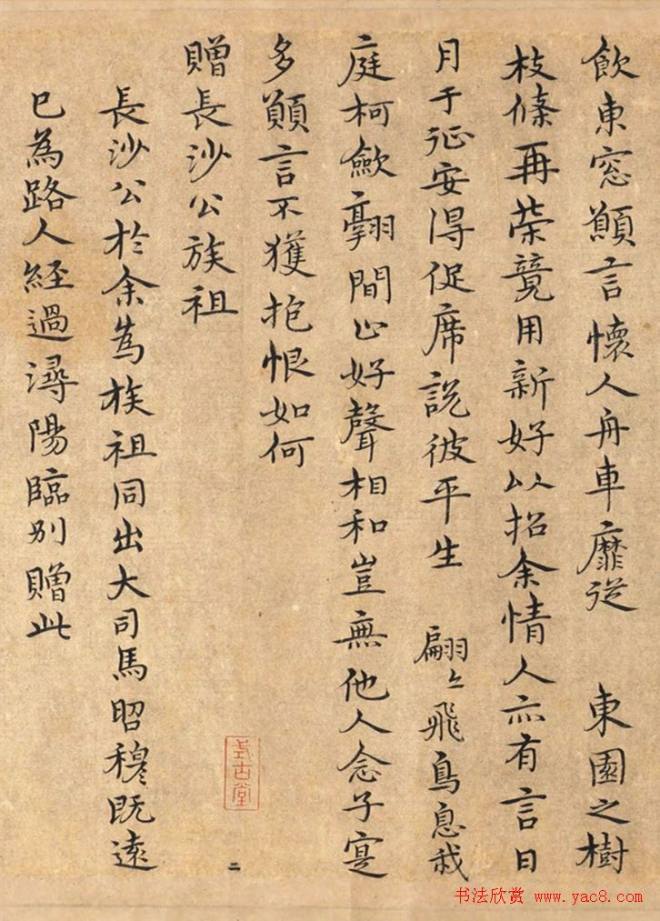 飲東窓顚言懷人舟車靡從　東園之樹
枝條再榮競用新好以招余情人亦有言日
月于征安得促席說彼平生　翩〻飛鳥息我
庭柯斂翮間止好聲相和豈無他人念子寔
多顚言不獲抱恨如何
贈長沙公族祖
長沙公於余為族祖同出大司馬昭穆既遠
已為路人經過潯陽臨別贈此
二
书法欣赏 www.yac8.com